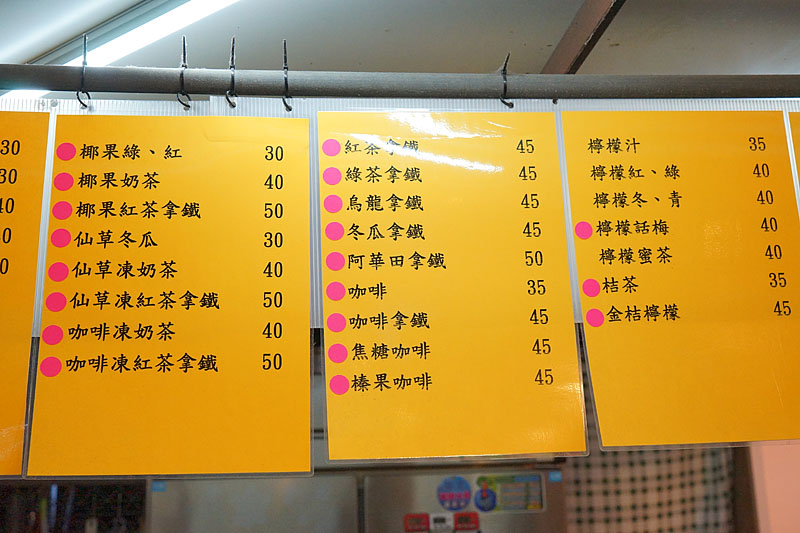 30
30
40
30
0
椰果綠、紅 30
椰果奶茶 40
椰果紅茶拿鐵 50
仙草冬瓜 30
仙草凍奶茶 40
仙草凍紅茶拿鐵 50
咖啡凍奶茶 40
咖啡凍紅茶拿鐵 50
紅茶拿鐵 45
綠茶拿鐵 45
烏龍拿鐵 45
冬瓜拿鐵 45
阿華田拿鐵 50
咖啡 35
咖啡拿鐵 45
焦糖咖啡 45
榛果咖啡 45
檸檬汁 35
檸檬紅、綠 40
檸檬冬、青 40
檸檬話梅 40
檸檬蜜茶 40
桔茶 35
金桔檸檬 45